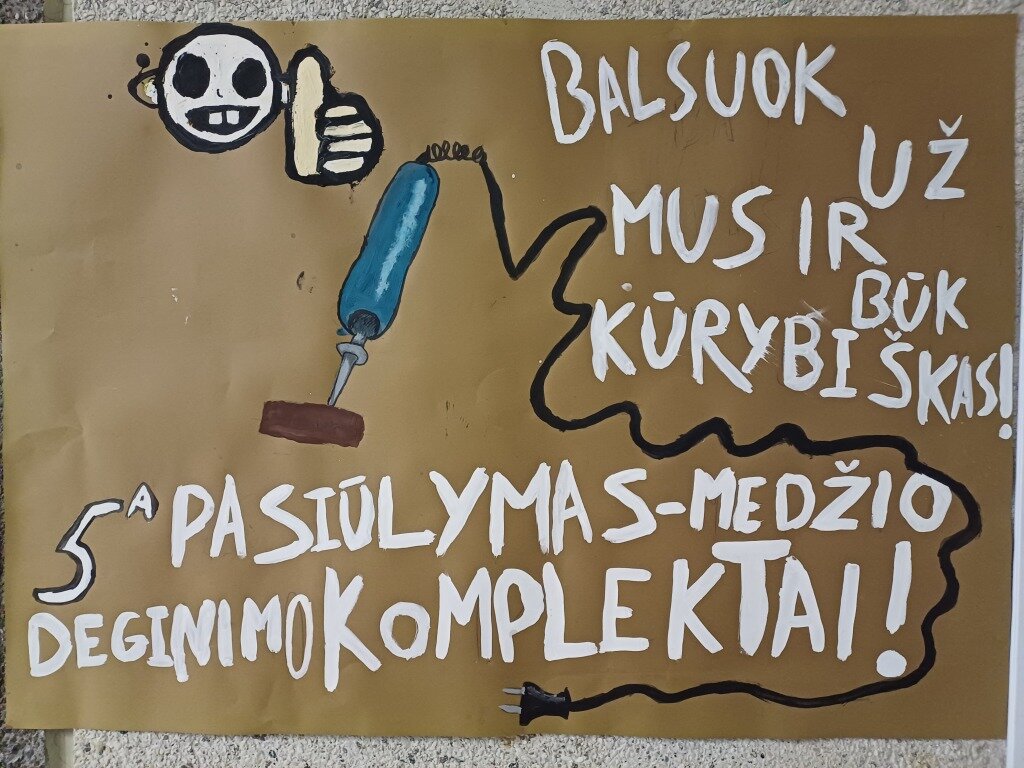 BALSUOK
UŽ
MUS IR
BŪK
KŪRYBIŠKAS!
5A PASIŪLYMAS-MEDŽIO
DEGINIMO KOMPLEKTAI!